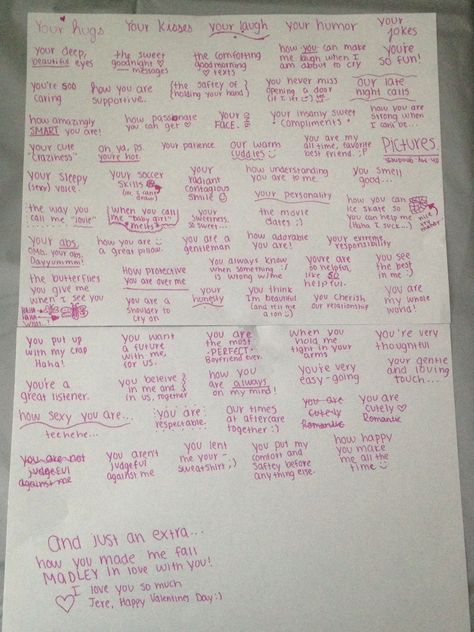 Your hugs
Your kisses
your laugh
your humor
your jokes
your deep, beautiful eyes
the sweet goodnight ♡ messages
the comforting goodmorning ♡ texts
how you can make me laugh when I am about to cry
you're so fun!
you're soo caring
how you are supportive.
{the saftey of holding your hand}
you never miss opening a door
our late night calls
how amazingly SMART you are!
how passionate you can get ♡
your FACE.
your insanely sweet compliments!
how you are strong when I can't be...
your cute "craziness"
oh ya, ps. you're hot.
your patience
our warm cuddles
you are my all time, favorite best friend. ;P
PICTURES
your sleepy (sexy) voice.
your soccer skills
your radiant contagious smile
how understanding you are to me.
you smell good...
the way you call me "lovie"
when you call me "baby girl" *melts*
your sweetness, so sweet...
your personality
the movie dates ;)
how you can skate so you can help me (haha I suck...)
your abs, OMG. your abs. Dayyummm!
how you are a great pillow.
you are a gentleman
how adorable you are!
your extreme responsibility
the butterflies you give me when I see you
How protective you are over me
you always know when something is wrong w/me
you're so helpful, like so helpful.
you see the best in me :)
HAHA HAHA WHAT...
you are a shoulder to cry on
your honesty
you think I'm beautiful (and tell me a ton
you cherish our relationship
you are my whole world!
you put up with my crap Haha!
you want a future with me, for us.
you are the most *PERFECT* Boyfriend ever.
when you hold me tight in your arms
you're very thoughtful
you're a great listener.
you beleive in me and in us, together
how you are always on my mind!
you're very easy-going
your gentle and loving touch...
how sexy you are... teehehe...
you are respectable.
our times at aftercare together :)
you are cutely Romantic
you are cutely ♡ Romantic
you are not judgeful against me
you aren't judgeful against me
you lent me your sweatshirt ;)
you put my comfort and saftey before anything else.
how happy you make me all the time
And just an extra...
how you made me fall
MADLEY in love with you!
I love you so much
Jere, Happy Valentines Day :)